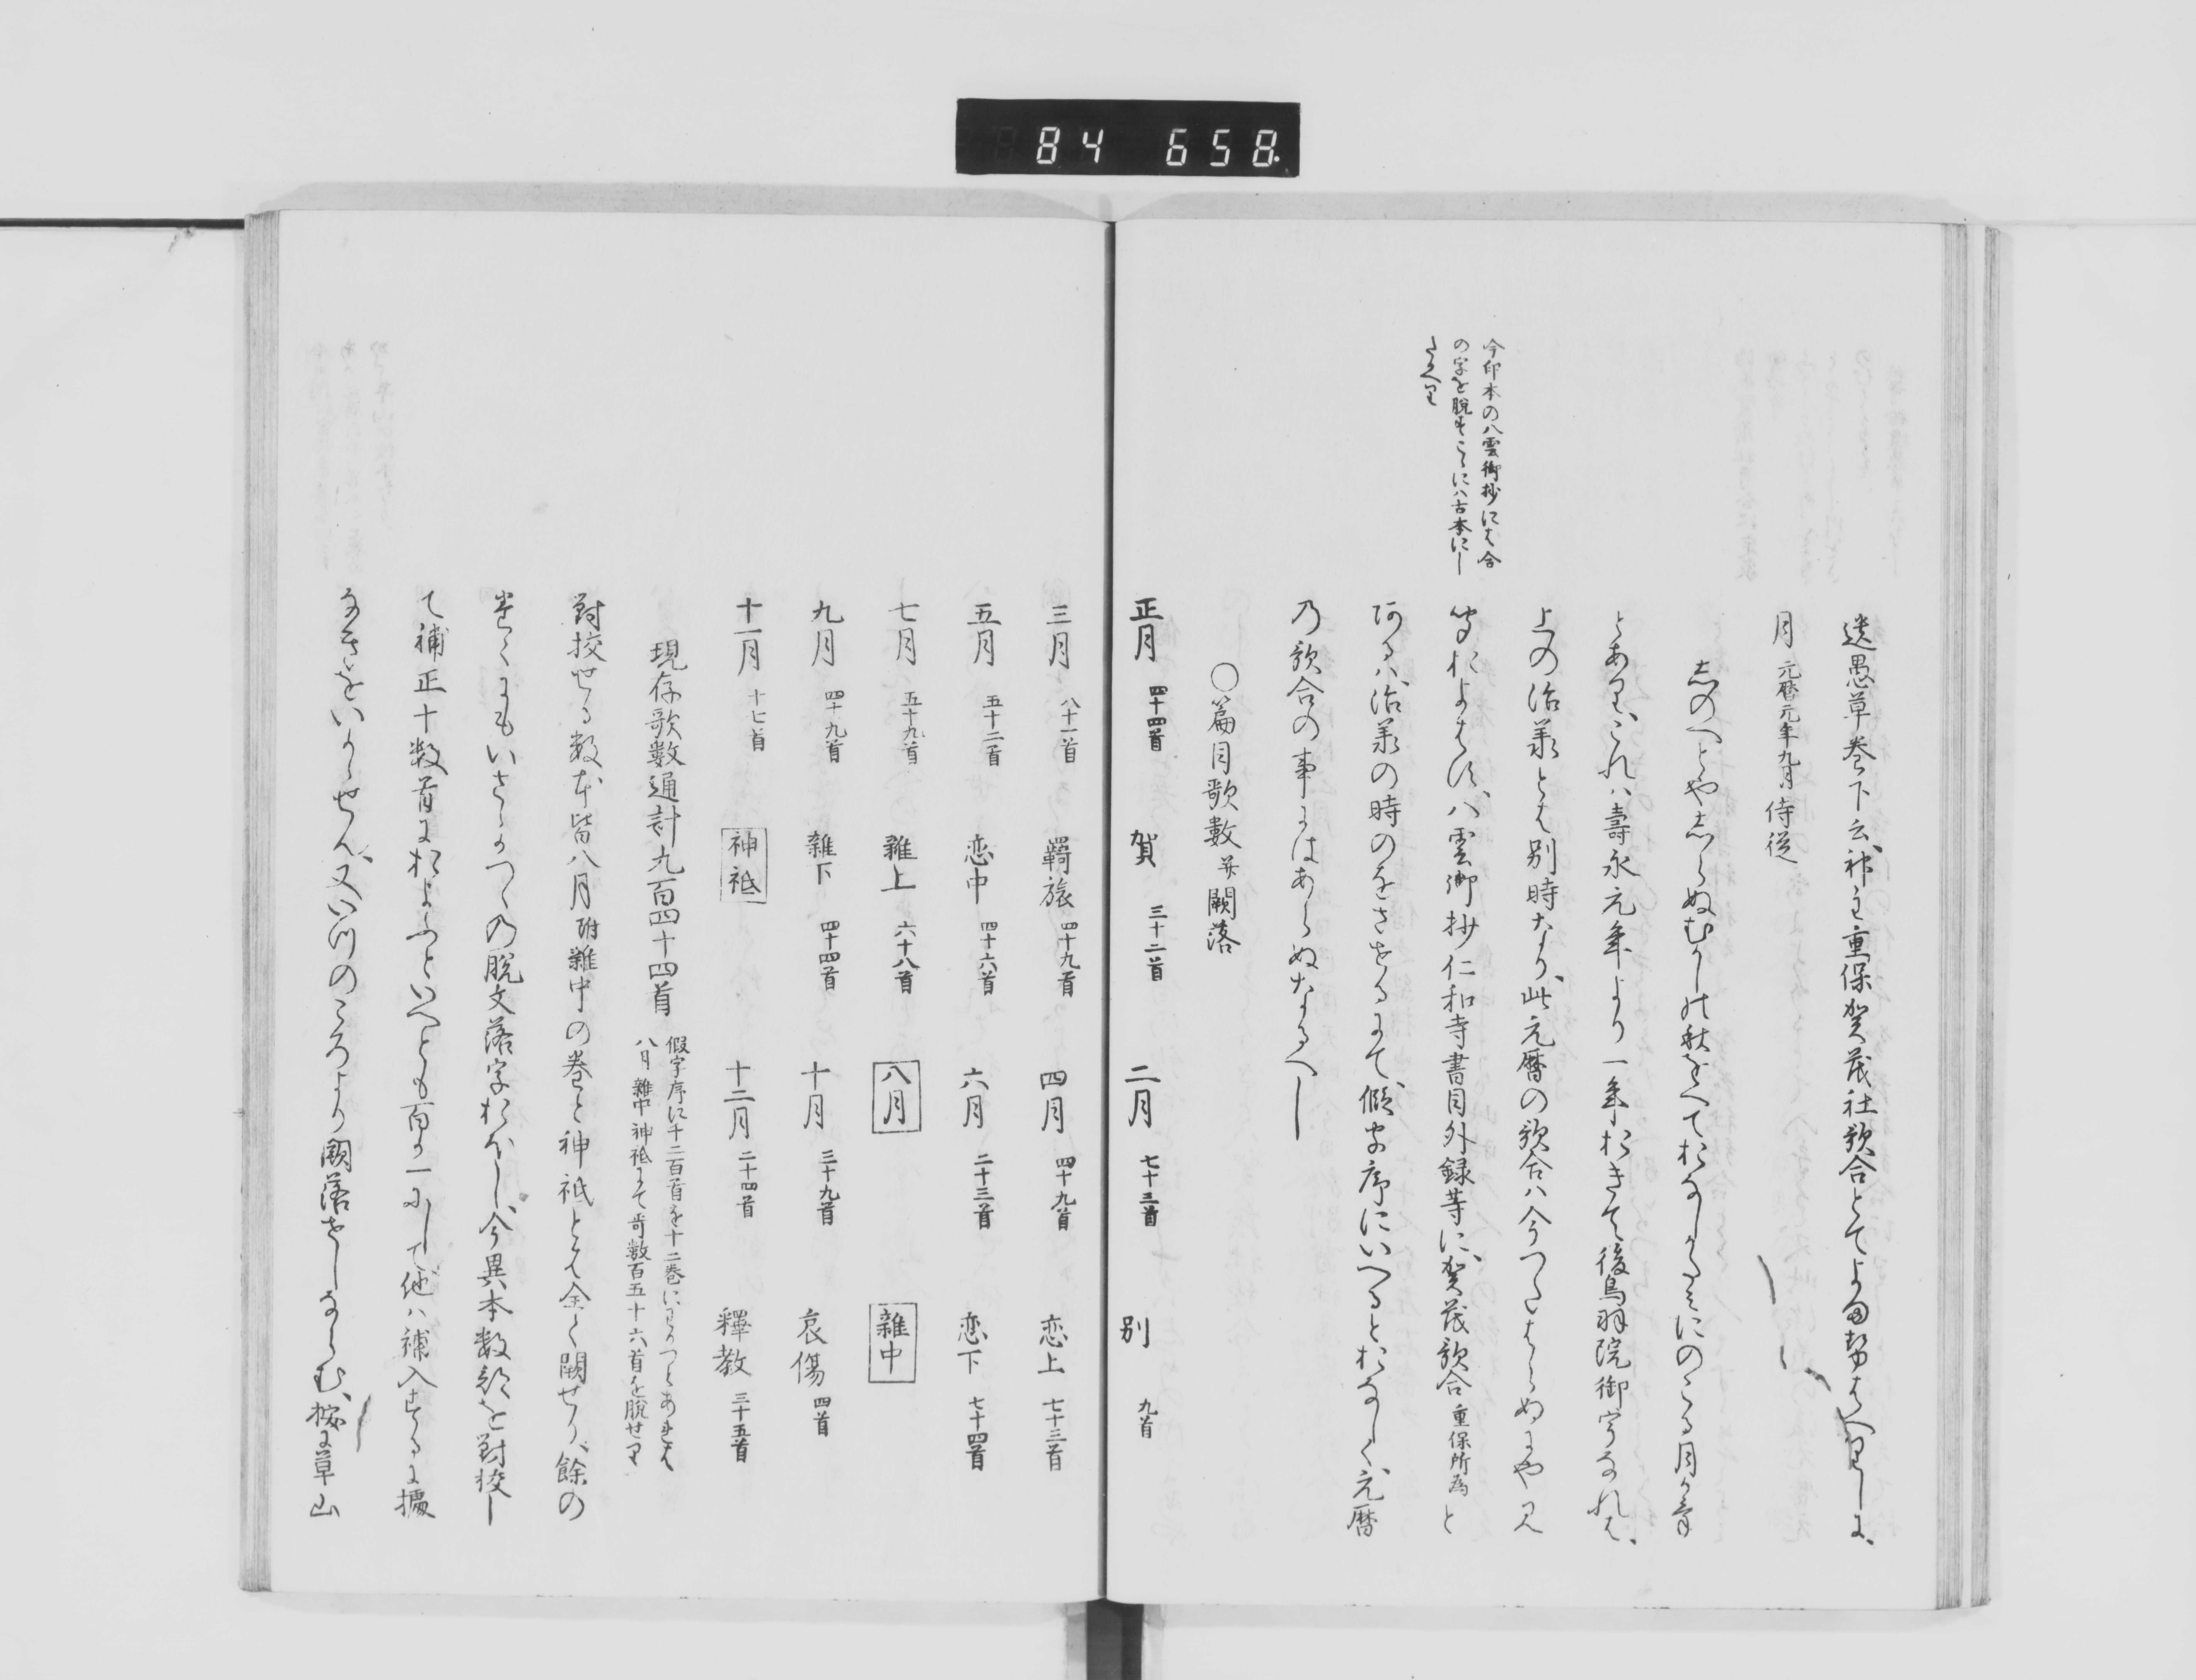 84 658.
遺愚草巻下云、神主重保賀茂社歌合とてよませはへりしに、
月 元暦元年九月 侍従
しのへとやしらぬむかしの秋をへておなしかたみにのこる月かけ
とあり、これハ壽永元年より一年おきて後鳥羽院御宇なれは、
上の治承とは別時なり、此元暦の歌合ハ今つたはらぬにや見
及はす、八雲御抄仁和寺書目外録等に、賀茂歌合 重保所為 と
あるハ、治承の時のをさせるにて、假字序にいへるとおなしく、元暦
乃歌合の事にはあらぬなるへし
今印本の八雲御抄には合
の字を脱すこゝにハ古本にし
たかへり
○篇目歌數并闕落
正月 四十四首 賀 三十二首 二月 七十三首 別 九首
三月 八十一首 羇旅 四十九首 四月 四十九首 恋上 七十三首
五月 五十二首 恋中 四十六首 六月 二十三首 恋下 七十四首
七月 五十九首 雜上 六十八首 八月 雜中
九月 四十九首 雜下 四十四首 十月 三十九首 哀傷 四首
十一月 十七首 神祗 十二月 二十四首 釋教 三十五首
現存歌數通計九百四十四首 假字序に千二百首を十二巻にわかつとあれは
八月 雜中 神祗にて哥數百五十六首を脱せり
對挍せる數本皆八月 附雜中の巻と神祗とは全く闕せり、餘の
巻〱にもいさゝかつゝの脱文落字おほし、今異本數部を對挍し
て補正十數首におよふといへとも百か一にして他ハ補入するに據
なきをいかゝせん、又いつのころより闕落せしならむ、按に草山